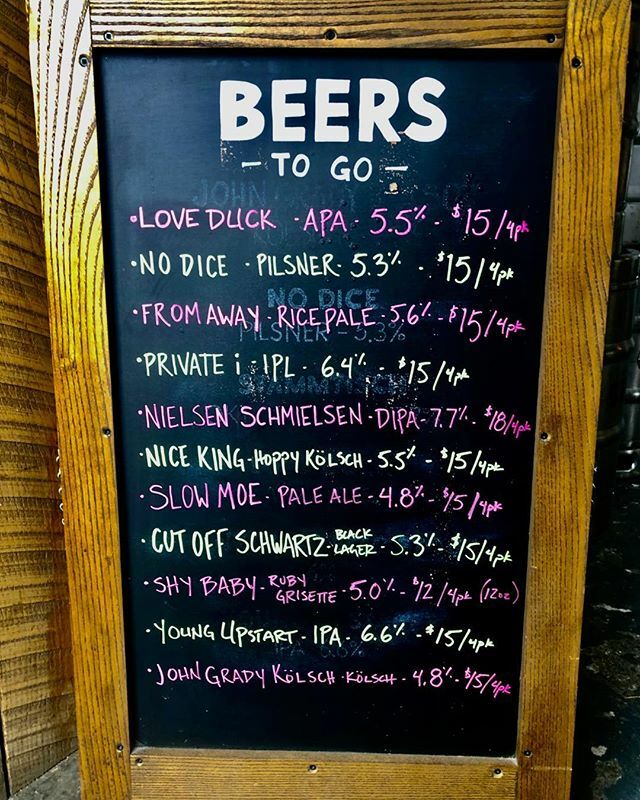 BEERS
- TO GO -
• LOVE DUCK - APA - 5.5% - $15/4pk
• NO DICE - PILSNER - 5.3% - $15/4pk
NO DICE
• FROM AWAY - RICE PALE - 5.6% - $15/4pk
PILSNER - 5.3%
• PRIVATE i - IPL - 6.4% - $15/4pk
STAMMTISCH
• NIELSEN SCHMIELSEN - DIPA - 7.7% - $18/4pk
• NICE KING - HOPPY KÖLSCH - 5.5% - $15/4pk
• SLOW MOE - PALE ALE - 4.8% - $15/4pk
• CUT OFF SCHWARTZ - BLACK LAGER - 5.3% - $15/4pk
• SHY BABY - RUBY GRISETTE - 5.0% - $12/4pk (12oz)
• YOUNG UPSTART - IPA - 6.6% - $15/4pk
• JOHN GRADY KÖLSCH - KÖLSCH - 4.8% - $15/4pk